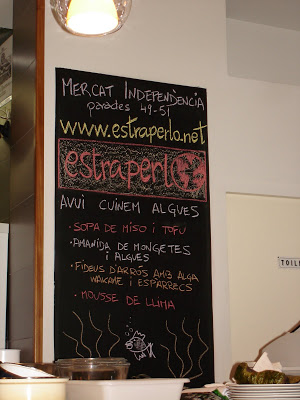 estraperlo
MERCAT INDEPENDÈNCIA
parades 49-51
www.estraperlo.net
estraperlo
AVUI CUINEM ALGUES
• SOPA DE MISO I TOFU
• AMANIDA DE MONGETES
I ALGUES
• FIDEUS D'ARRÒS AMB ALGA
WAKAME I ESPARRECS
• MOUSSE DE LLIMA
TOIL